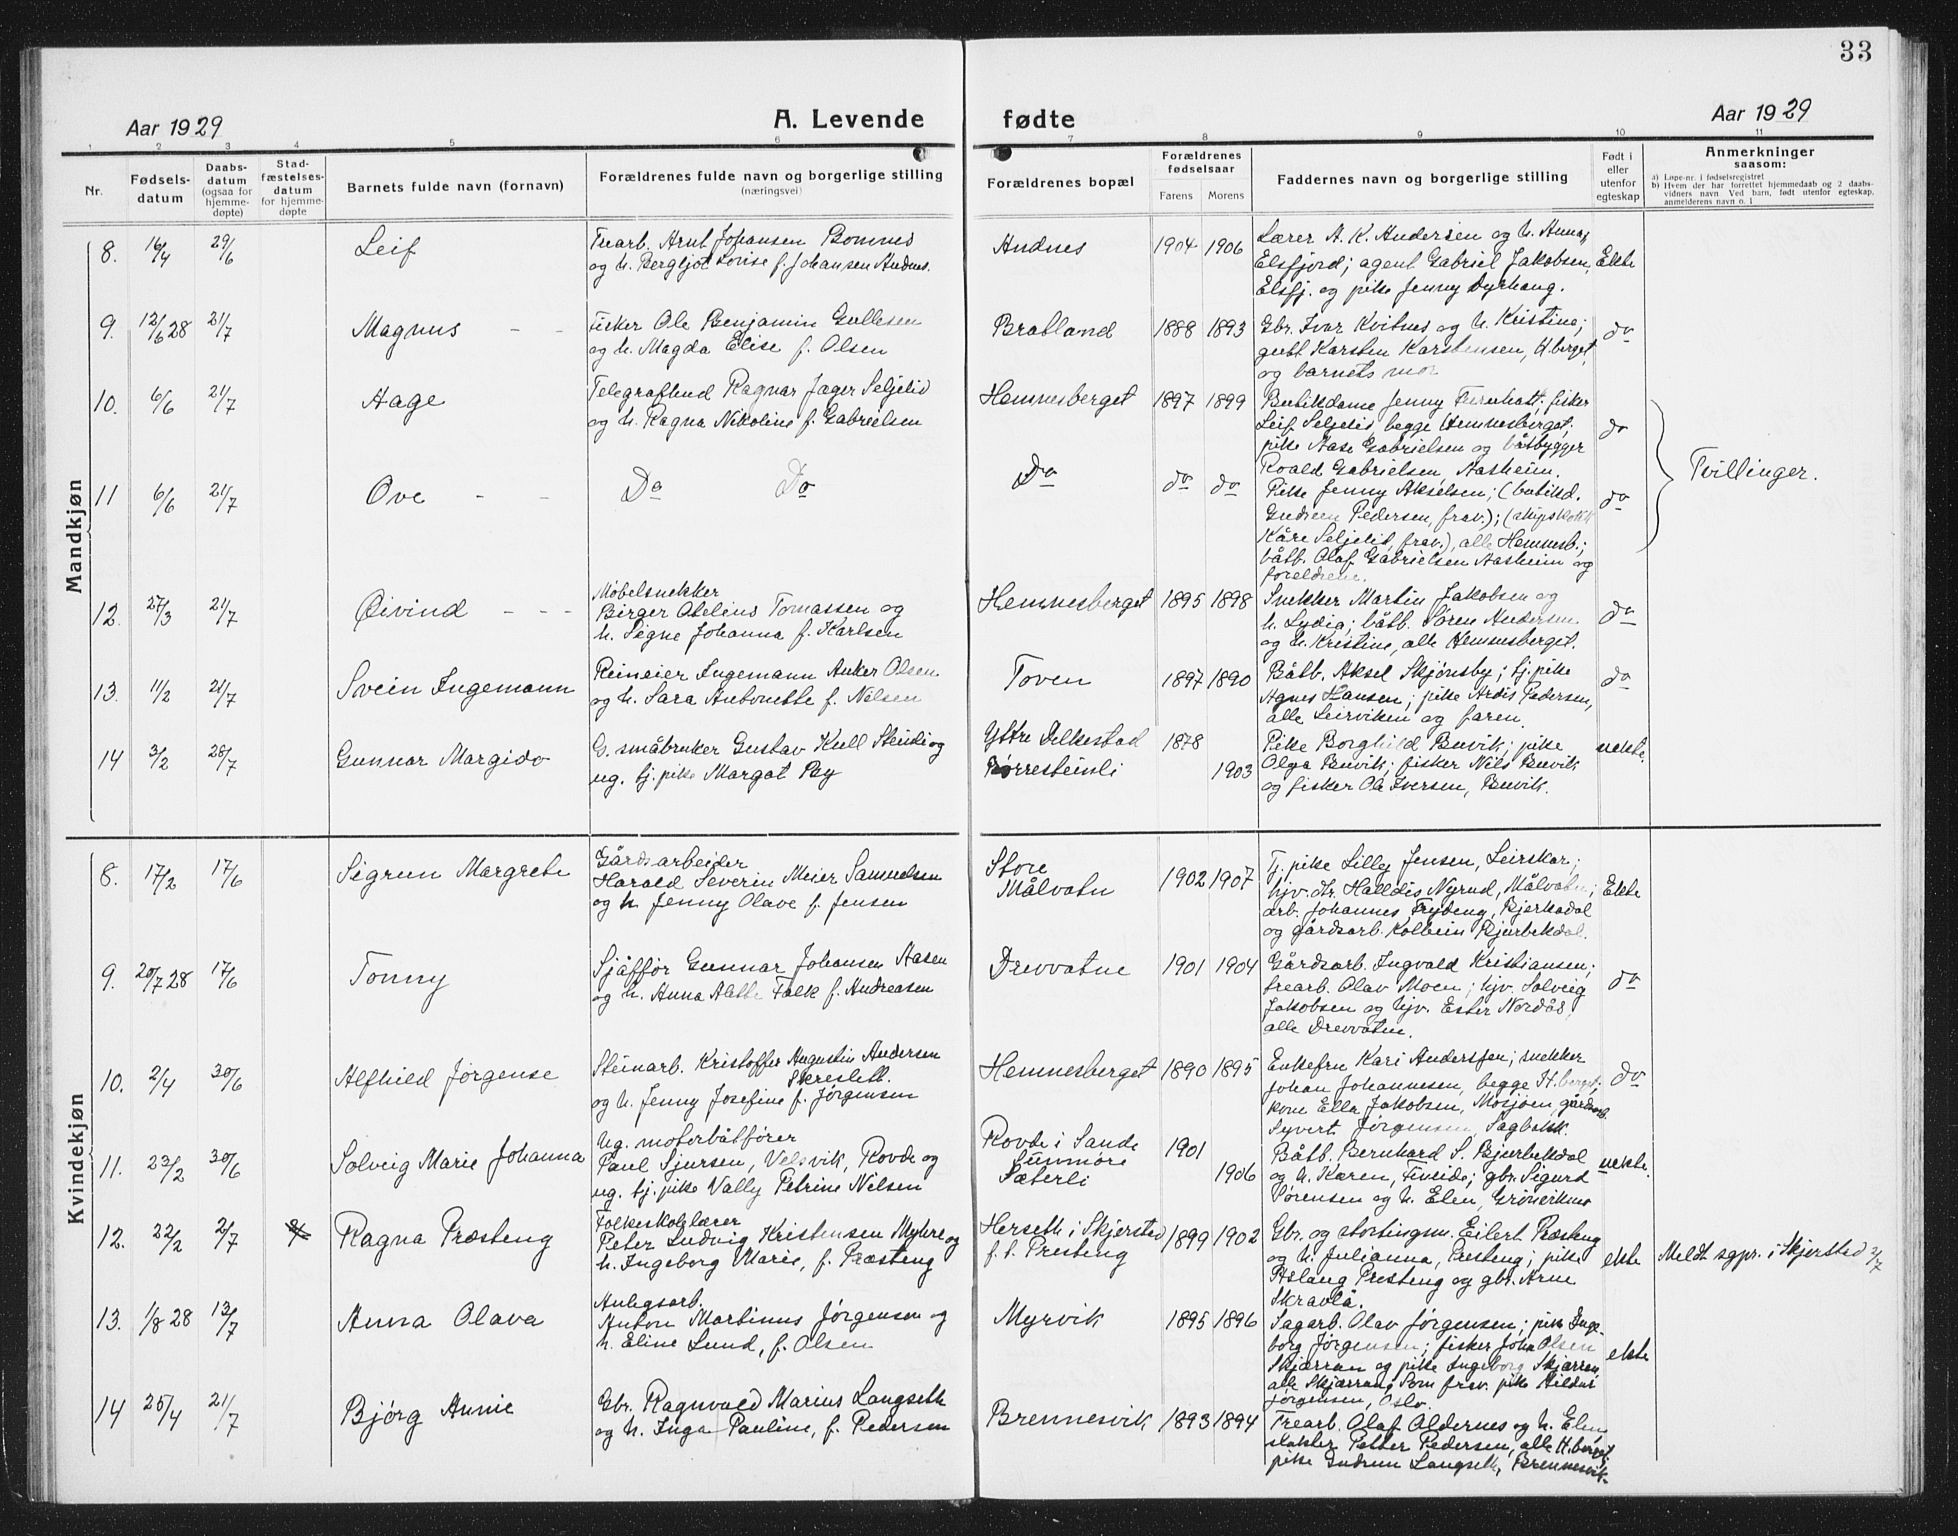 33
Aar 1929
A. Levende fødte
Aar 1929
1 2 3 4 5 6 7 8 9 10 11
Nr.
Fødsels-
datum
Daabs-
datum
(ogsaa for
hjemme-
døpte)
Stad-
fæstelses-
datum
for hjemme-
døpte
Barnets fulde navn (fornavn)
Forældrenes fulde navn og borgerlige stilling
(næringsvei)
Forældrenes bopæl
Forældrenes
fødselsaar
Farens Morens
Faddernes navn og borgerlige stilling
Født i
eller
utenfor
egteskap
Anmerkninger
saasom:
a) Løpe-nr. i fødselsregistret
b) Hvem der har forrettet hjemmedaab og 2 daabs-
vidners navn Ved barn, født utenfor egteskap,
anmelderens navn o. l
Mandkjøn
8. 16/4 29/6 Leif
Trearb. Arnt Johansen Bomnes
og h. Bergljot Lovise f. Johansen Andnes.
Andnes 1904 1906
Lærer A. K. Andersen og h. Anna,
Elsfjord; agent Gabriel Jakobsen,
Elsfj. og pike Jenny Dyrhaug.
Ekte
9. 12/6 28 21/7 Magnus
Fisker Ole Benjamin Gullesen
og h. Magda Elise f. Olsen
Bratland 1888 1893
Gbr. Ivar Kvitnes og h. Kristine;
gutt Karsten Karstensen, H.berget,
og barnets mor
do
10. 6/6 21/7 Aage
Telegrafbud Ragnar Jager Seljelid
og h. Ragna Nikoline f. Gabrielsen
Hemnesberget 1897 1899
Butikdame Jenny Furuhatt; fisker
Leif Seljelid, begge Hemnesberget;
pike Aase Gabrielsen og båtbygger
Roald Gabrielsen Aasheim.
do
11 6/6 21/7 Ove
Do Do
Do do do
Pike Jenny Akselsen; (butikd.
Gudrun Pedersen, frav.); (skipskokk
Kåre Seljelid, frav.), alle Hemnesb.;
båtb. Olaf Gabrielsen Aasheim og
foreldrene.
do
Tvillinger.
12. 27/3 21/7 Øivind
Møbelsnekker
Birger Otelius Tomassen og
h. Signe Johanna f. Karlsen
Hemnesberget 1895 1898
Snekker Martin Jakobsen og
h. Lydia; båtb. Søren Andersen
og h. Kristine, alle Hemnesberget.
do
13. 11/2 21/7 Svein Ingemann
Reineier Ingemann Anker Olsen
og h. Sara Antonette f. Nilsen
Toven 1897 1890
Båtb. Aksel Skjønsby; tj.pike
Agnes Hansen; pike Ardis Pedersen,
alle Leirviken og faren.
do
14 3/2 28/7 Gunnar Margido
G. småbruker Gustav Kull Steiro og
ug. tj. pike Margot Pay
Yttre Dilkestad 1878
Børresteinli 1903
Pike Borghild Buvik; pike
Olga Buvik; fisker Nils Buvik
og fisker Ole Iversen, Buvik.
uekte.
Kvindekjøn
8. 17/2 17/6 Sigrun Margrete
Gårdsarbeider
Harald Severin Meier Samuelsen
og h. Jenny Olave f. Jensen
Store
Målvatn
1902 1907
Tj. pike Lilly Jensen, Leirskar;
hjv. dtr Halldis Nyrud, Målvatn;
arb. Johannes Fryteng, Bjerkadal
og gårdsarb. Kolbein Bjerkdal.
Ekte
9. 20/7 28 17/6 Tonny
Sjåffør Gunnar Johansen Aasen
og h. Anna Alette Falk f. Andreasen
Drevvatne 1901 1904
Gårdsarb. Ingvald Kristiansen;
trearb. Olav Moen; hjv. Solveig
Jakobsen og hjv. Ester Nordås,
alle Drevvatn.
do
10. 2/4 30/6 Alfhild Jørgense
Steinarb. Kristoffer Augustin Andersen
Skreslett.
og h. Jenny Josefine f. Jørgensen
Hemnesberget 1890 1895
Enkefru Kari Anderssen; snekker
Johan Johannesen, begge H.berget;
kone Ella Jakobsen, Mosjøen, gårdsarb.
Syvert Jørgensen, Sagbakk.
do
11. 23/2 30/6 Solveig Marie Johanna
Ug. motorbåtfører
Paul Sjursen, Velsvik, Rovde og
ug. tj. pike Vally Petrine Nilsen
Rovde i Sande
Sunnmøre
Sæterli
1901
1906
Båtb. Bernhard S. Bjerkekdal
og h. Karen, Fineide; gbr. Sigurd
Sørensen og h. Elen, Grønviknes
uekte.
12. 22/2 2/7 Ragna Præsteng
Folkeskolelærer
Peter Ludvig Kristensen Myhre og
h. Ingeborg Marie, f. Præsteng
Herseth i Skjerstad
f. t. Presteng
1899 1902
Gbr. og stortingsm. Eilert Præsteng
og h. Julianna, Presteng; pike
Aslaug Presteng og gbr. Arne
Skravlå.
ekte
Meldt sgpr. i Skjerstad 2/7
13. 1/8 28 13/7 Anna Olava
Anlegsarb.
Anton Martinus Jørgensen og
h. Eline Lund, f. Olsen
Myrvik 1895 1896
Sagarb. Olav Jørgensen; pike Inge-
borg Jørgensen; fisker John Olsen
Skjærran og pike Ingeborg Skjærran,
alle Skjærran; Som frav. pike Hildur
Jørgensen, Oslo.
ekte
14 25/4 21/7 Bjørg Annie
Gbr. Ragnvald Marius Langseth
og h. Inga Pauline, f. Pedersen
Brennesvik 1893 1894
Trearb. Olaf Aldernes og h. Elen,
snekker Petter Pedersen, alle H.berget,
pike Gudrun Langseth, Brennesvik.